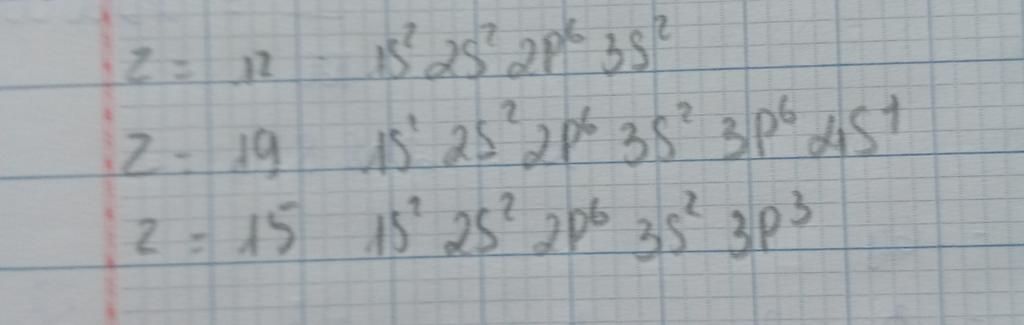 Z = 12 - 1S² 2S² 2P⁶ 3S²
Z - 19 1S¹ 2S² 2P⁶ 3S² 3P⁶ 4S¹
Z = 15 1S² 2S² 2P⁶ 3S² 3P³